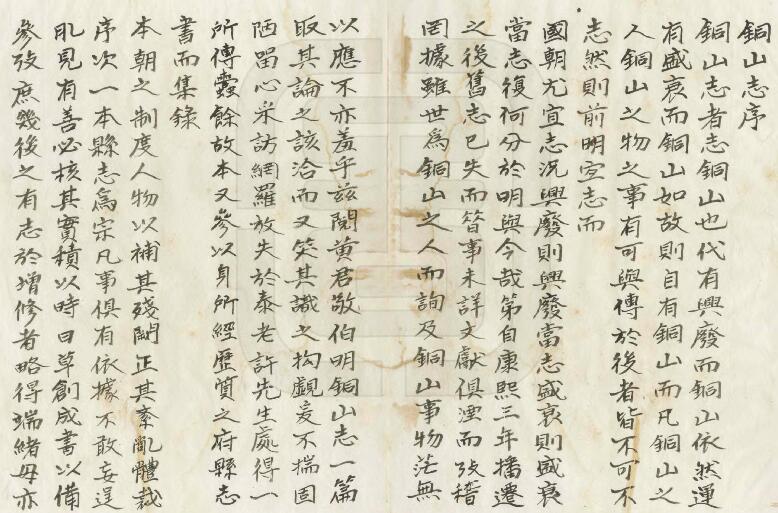 銅山志序
銅山志者志銅山也代有興廢而銅山依然運
有盛衰而銅山如故則自有銅山而凡銅山之
人銅山之物之事有可與傳於後者皆不可不
志然則前明宜志而
國朝尤宜志況興廢則興廢當志盛衰則盛衰
當志復何分於明與今哉第自康熙三年播遷
之後舊志已失而簪事未詳文獻俱湮而攷稽
罔據雖世為銅山之人而詢及銅山事物茫無
以應不亦羞乎茲閱黃君敬伯明銅山志一篇
取其論之該洽而又笑其識之拘觀爰不揣固
陋留心采訪網羅放失於泰老許先生處得一
所傳蠹餘故本又參以身所經歷質之府縣志
書而集錄
本朝之制度人物以補其殘闕正其紊亂體裁
序次一本縣志為宗凡事俱有依據不敢妄逞
肊見有善必核其實積以時日草創成書以備
參攷庶幾後之有志於增修者略得端緒毋亦